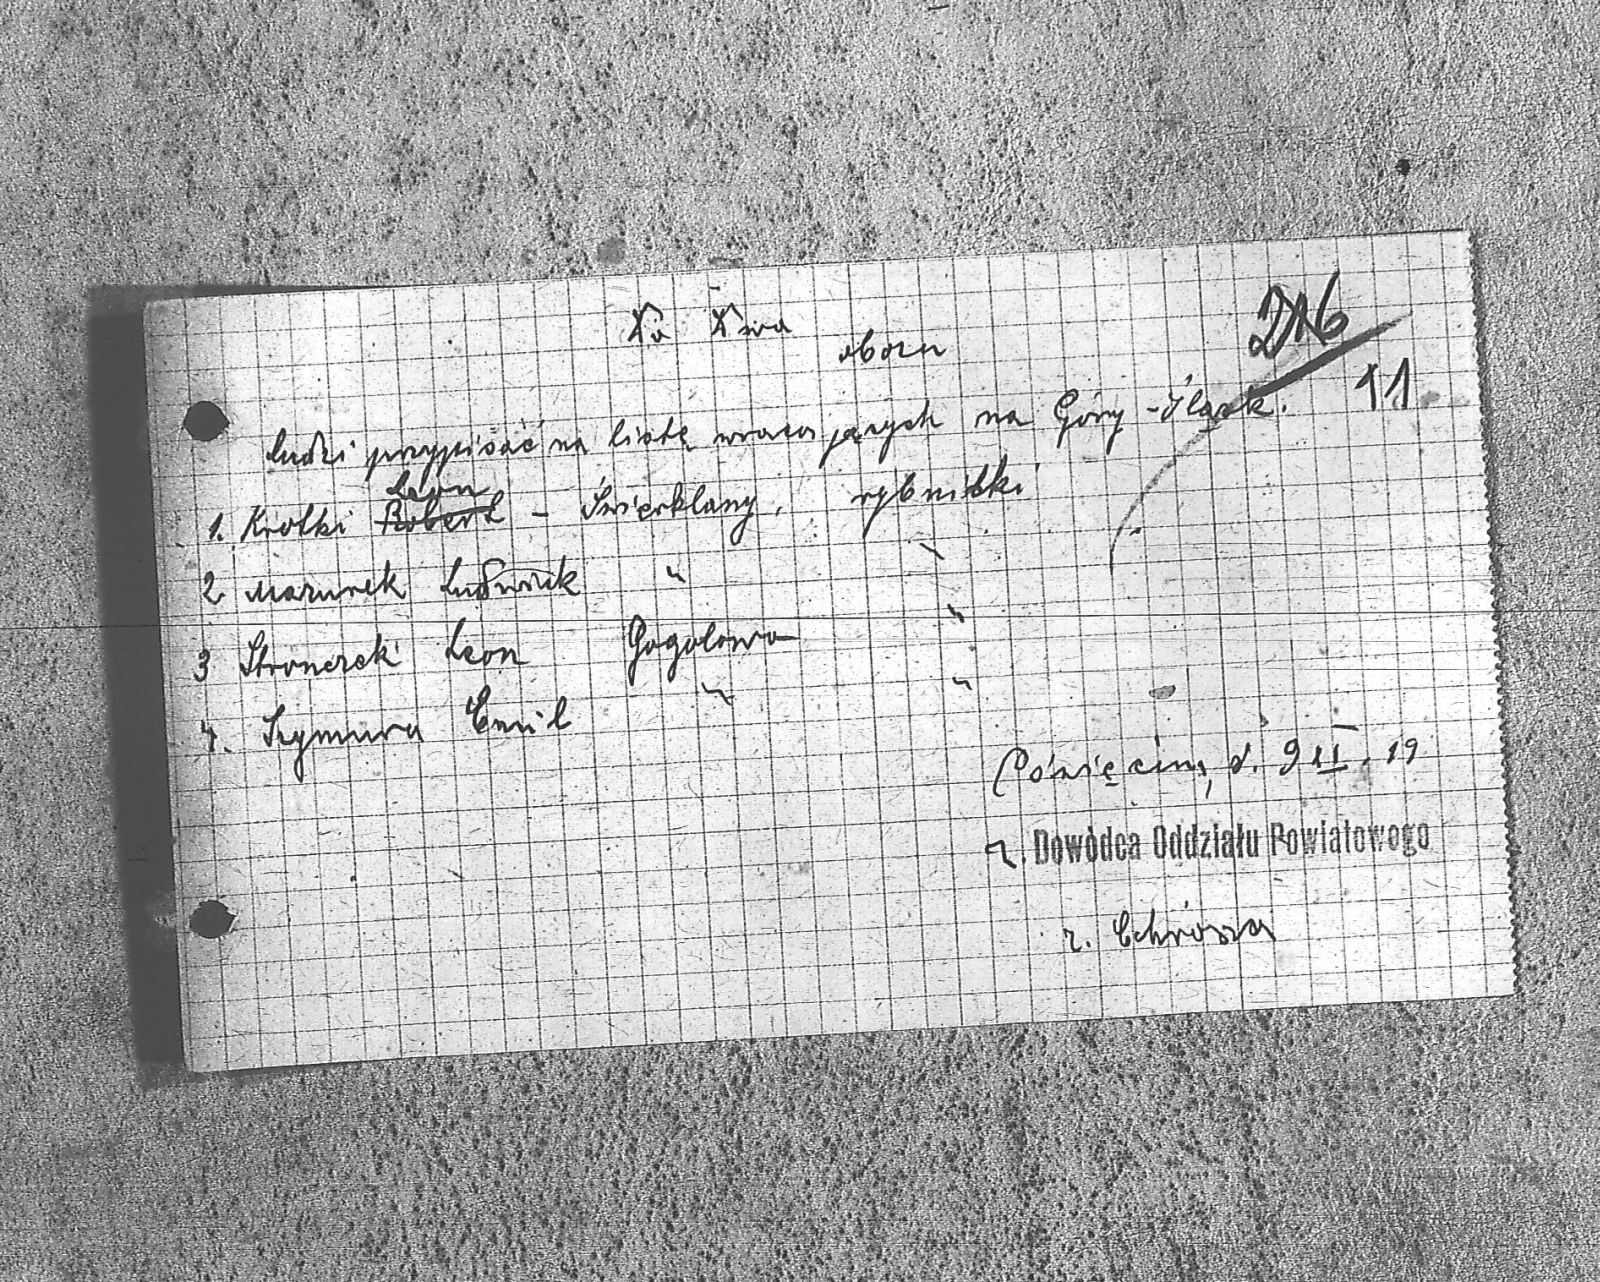 Do Dwa
obozu
216
11
ludzi przypisać na listę wracających na Górny-Śląsk.
Leon
1. Krotki Robert - Świerklany, rybnitki
2 Mazurek Ludwik " "
3 Stronczek Leon Gogolowa "
4. Szymura Emil " "
Oświęcim, d. 9 II. 19
z. Dowódca Oddziału Powiatowego